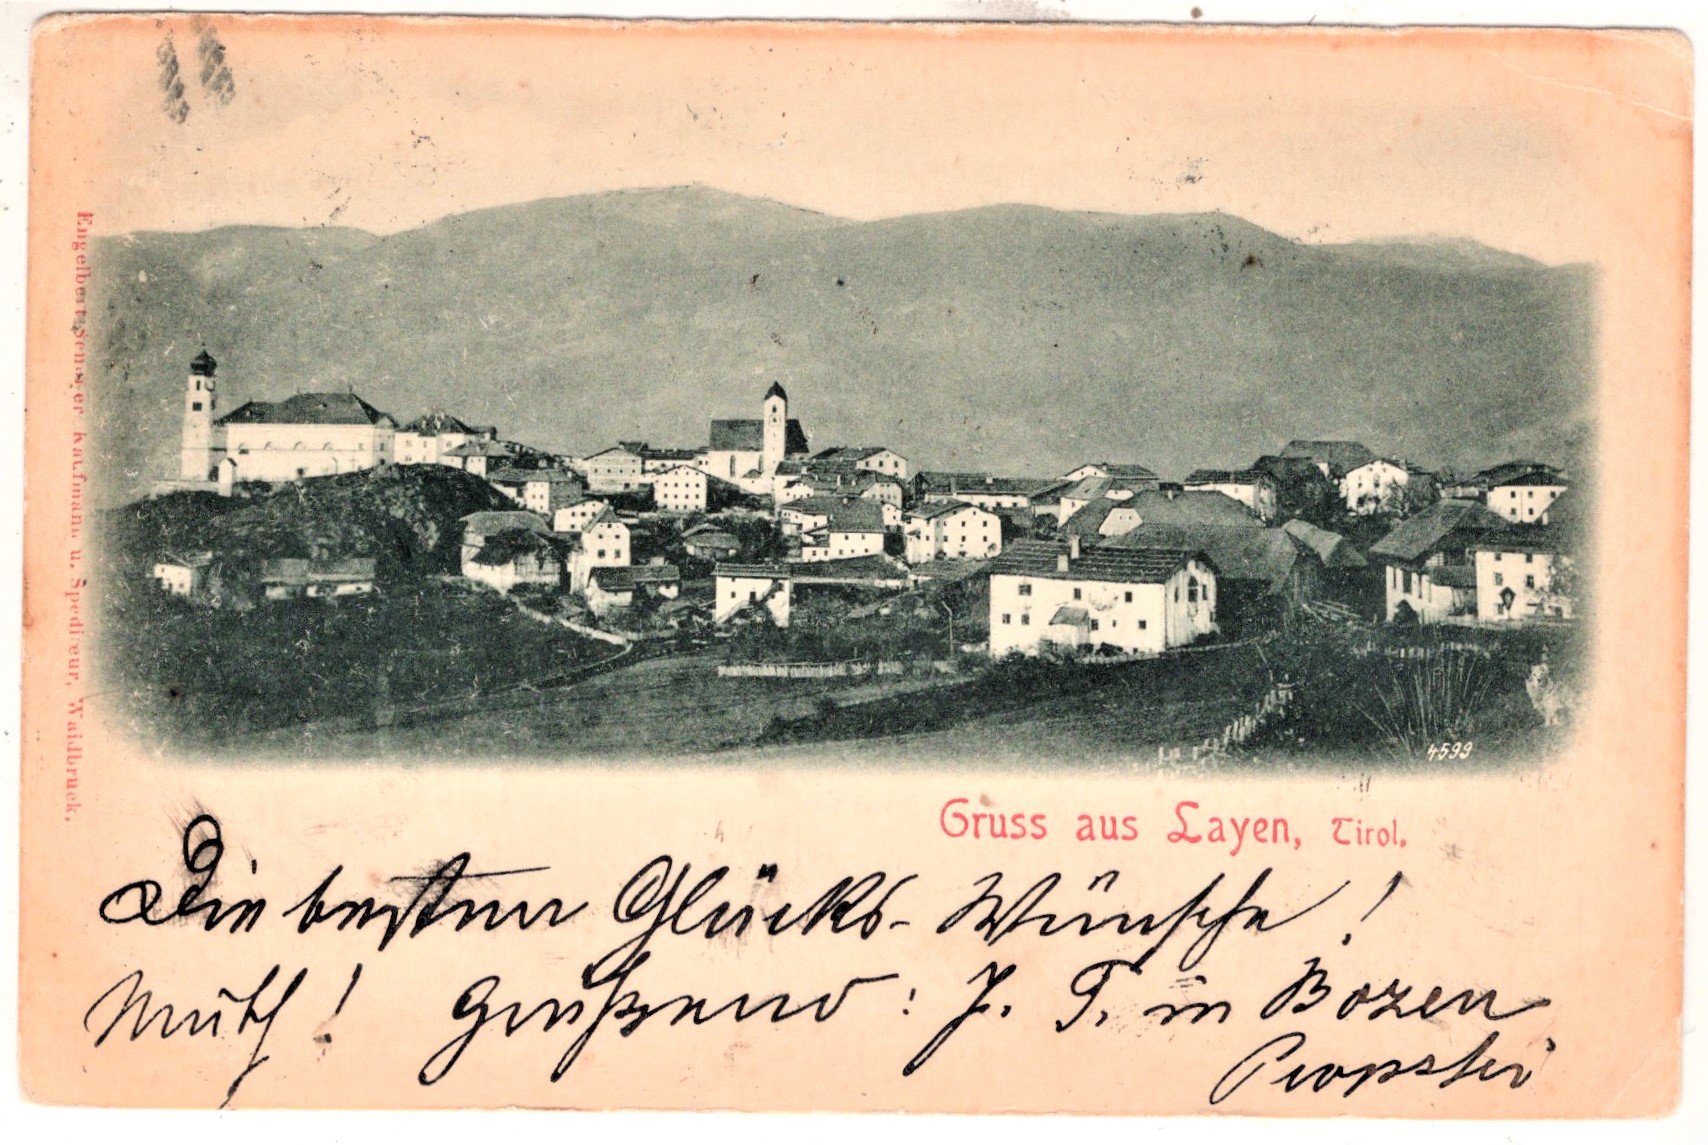 Engelbert Senoner Kaufmann u. Spediteur, Waidbruck.
4599
Gruss aus Layen, Tirol.
Die besten Glücks-Wünsche!
Muth! Grüßend: J. T. in Bozen
Propstei